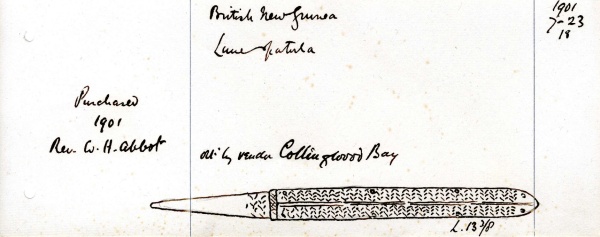 British New Guinea
Lime spatula
1901
7-23
18
Purchased
1901
Rev. W. H. Abbot
by vendor Collingwood Bay
L. 13 3/8